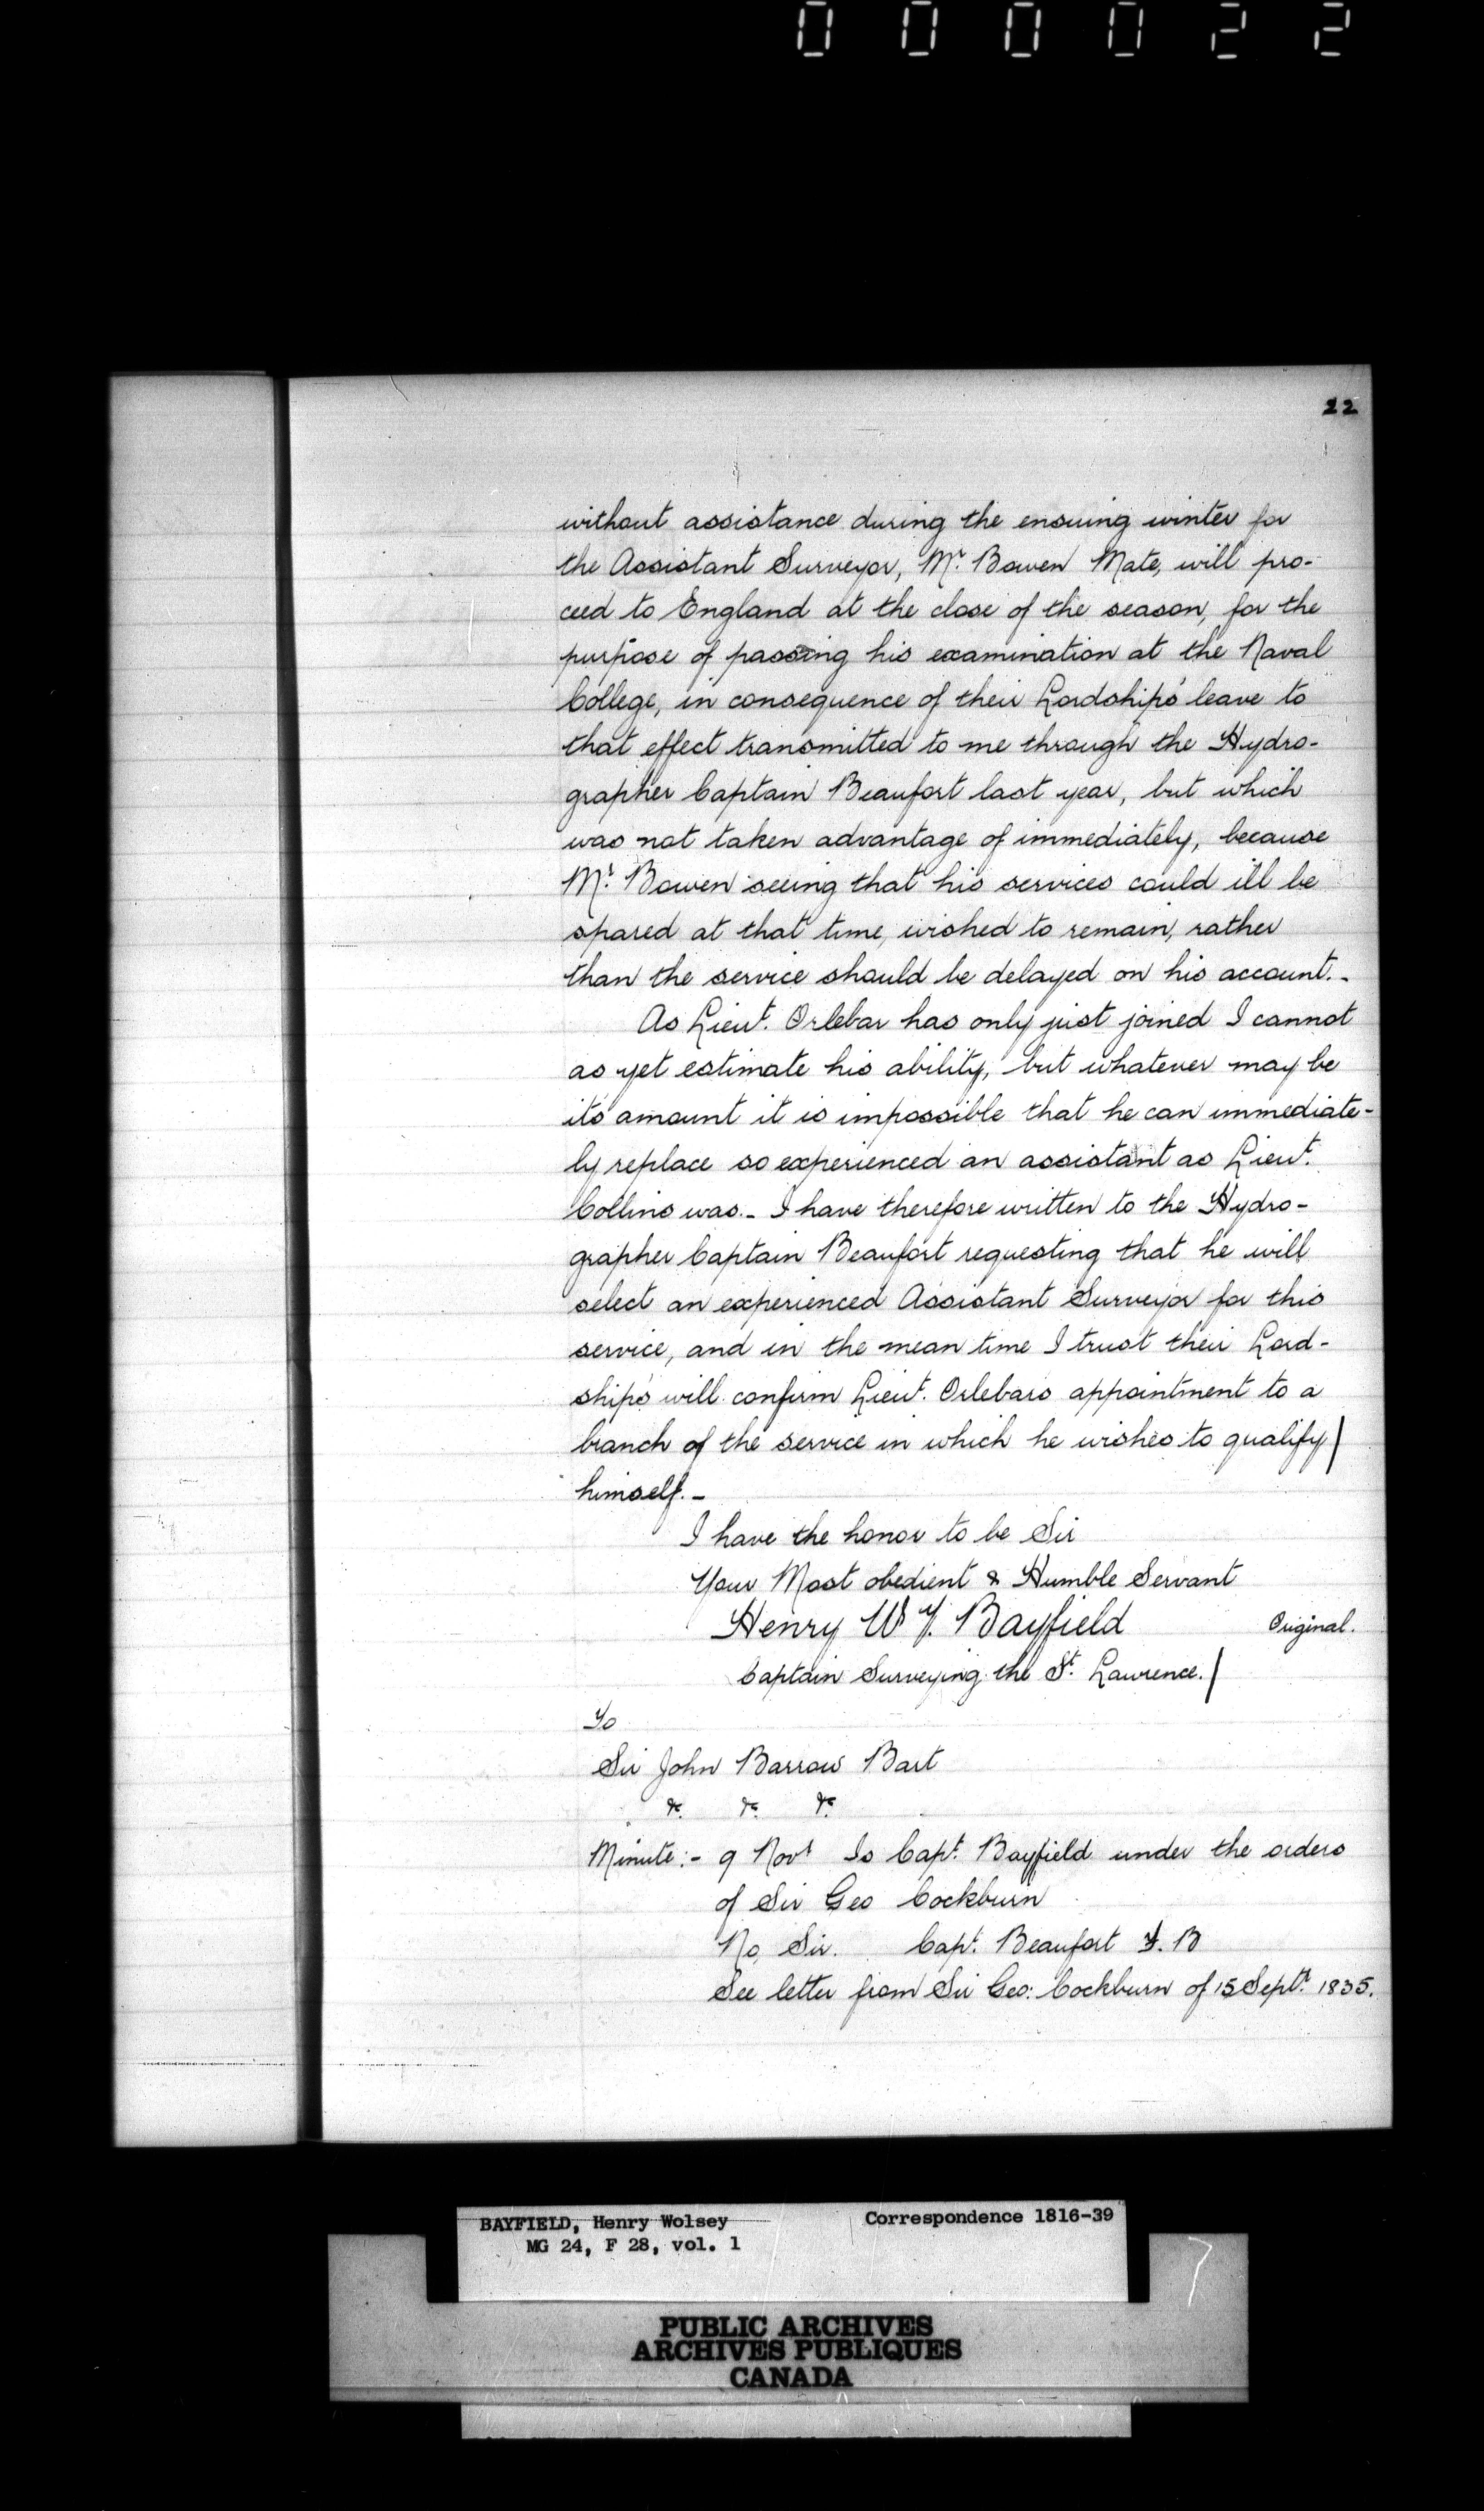 000022
22
without assistance during the ensuing winter for
the Assistant Surveyor, Mr. Bowen Mate, will pro-
ceed to England at the close of the season, for the
purpose of passing his examination at the Naval
College, in consequence of their Lordships' leave to
that effect transmitted to me through the Hydro-
grapher Captain Beaufort last year, but which
was not taken advantage of immediately, because
Mr. Bowen seeing that his services could ill be
spared at that time, wished to remain, rather
than the service should be delayed on his account.-
As Lieut. Orlebar has only just joined I cannot
as yet estimate his ability, but whatever may be
its amount it is impossible that he can immediate-
ly replace so experienced an assistant as Lieut.
Collins was.- I have therefore written to the Hydro-
grapher Captain Beaufort requesting that he will
select an experienced Assistant Surveyor for this
service, and in the mean time I trust their Lord-
ships will confirm Lieut. Orlebars appointment to a
branch of the service in which he wishes to qualify/
himself.-
I have the honor to be Sir
Your Most obedient & Humble Servant
Henry W Y. Bayfield Original.
Captain Surveying the St. Lawrence./
To
Sir John Barrow Bart
&c. &c. &c.
Minute:- 9 Novr Is Capt. Bayfield under the orders
of Sir Geo Cockburn
No, Sir. Capt. Beaufort F. B
See letter from Sir Geo: Cockburn of 15 Septr. 1835.
BAYFIELD, Henry Wolsey Correspondence 1816-39
MG 24, F 28, vol. 1
7
PUBLIC ARCHIVES
ARCHIVES PUBLIQUES
CANADA